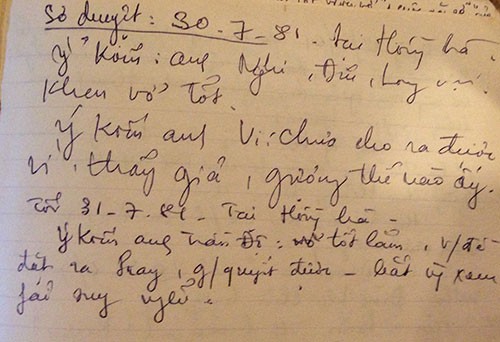 Sơ duyệt: 30-7-81 - Tại Hồng hà.
Ý kiến: anh Nghi, Đẩu, Long v.v.
Khen vở tốt.
Ý kiến anh Vi: chưa cho ra được
vì, thấy giả, gượng thế nào ấy.
Tối 31-7-81 - Tại Hồng hà -
Ý kiến anh trần Độ: vở tốt lắm, v/đề
đặt ra hay, g/quyết được - bắt ng xem
phải suy nghĩ.